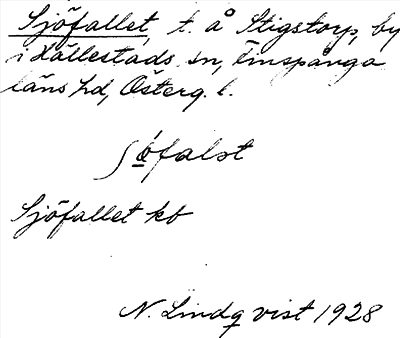 Sjöfallet, t. å Stigstorp, by
i Hällestads sn, Finspånga
läns hd, Österg. l.
ʃo̲falst
Sjöfallet kb
N. Lindqvist 1928